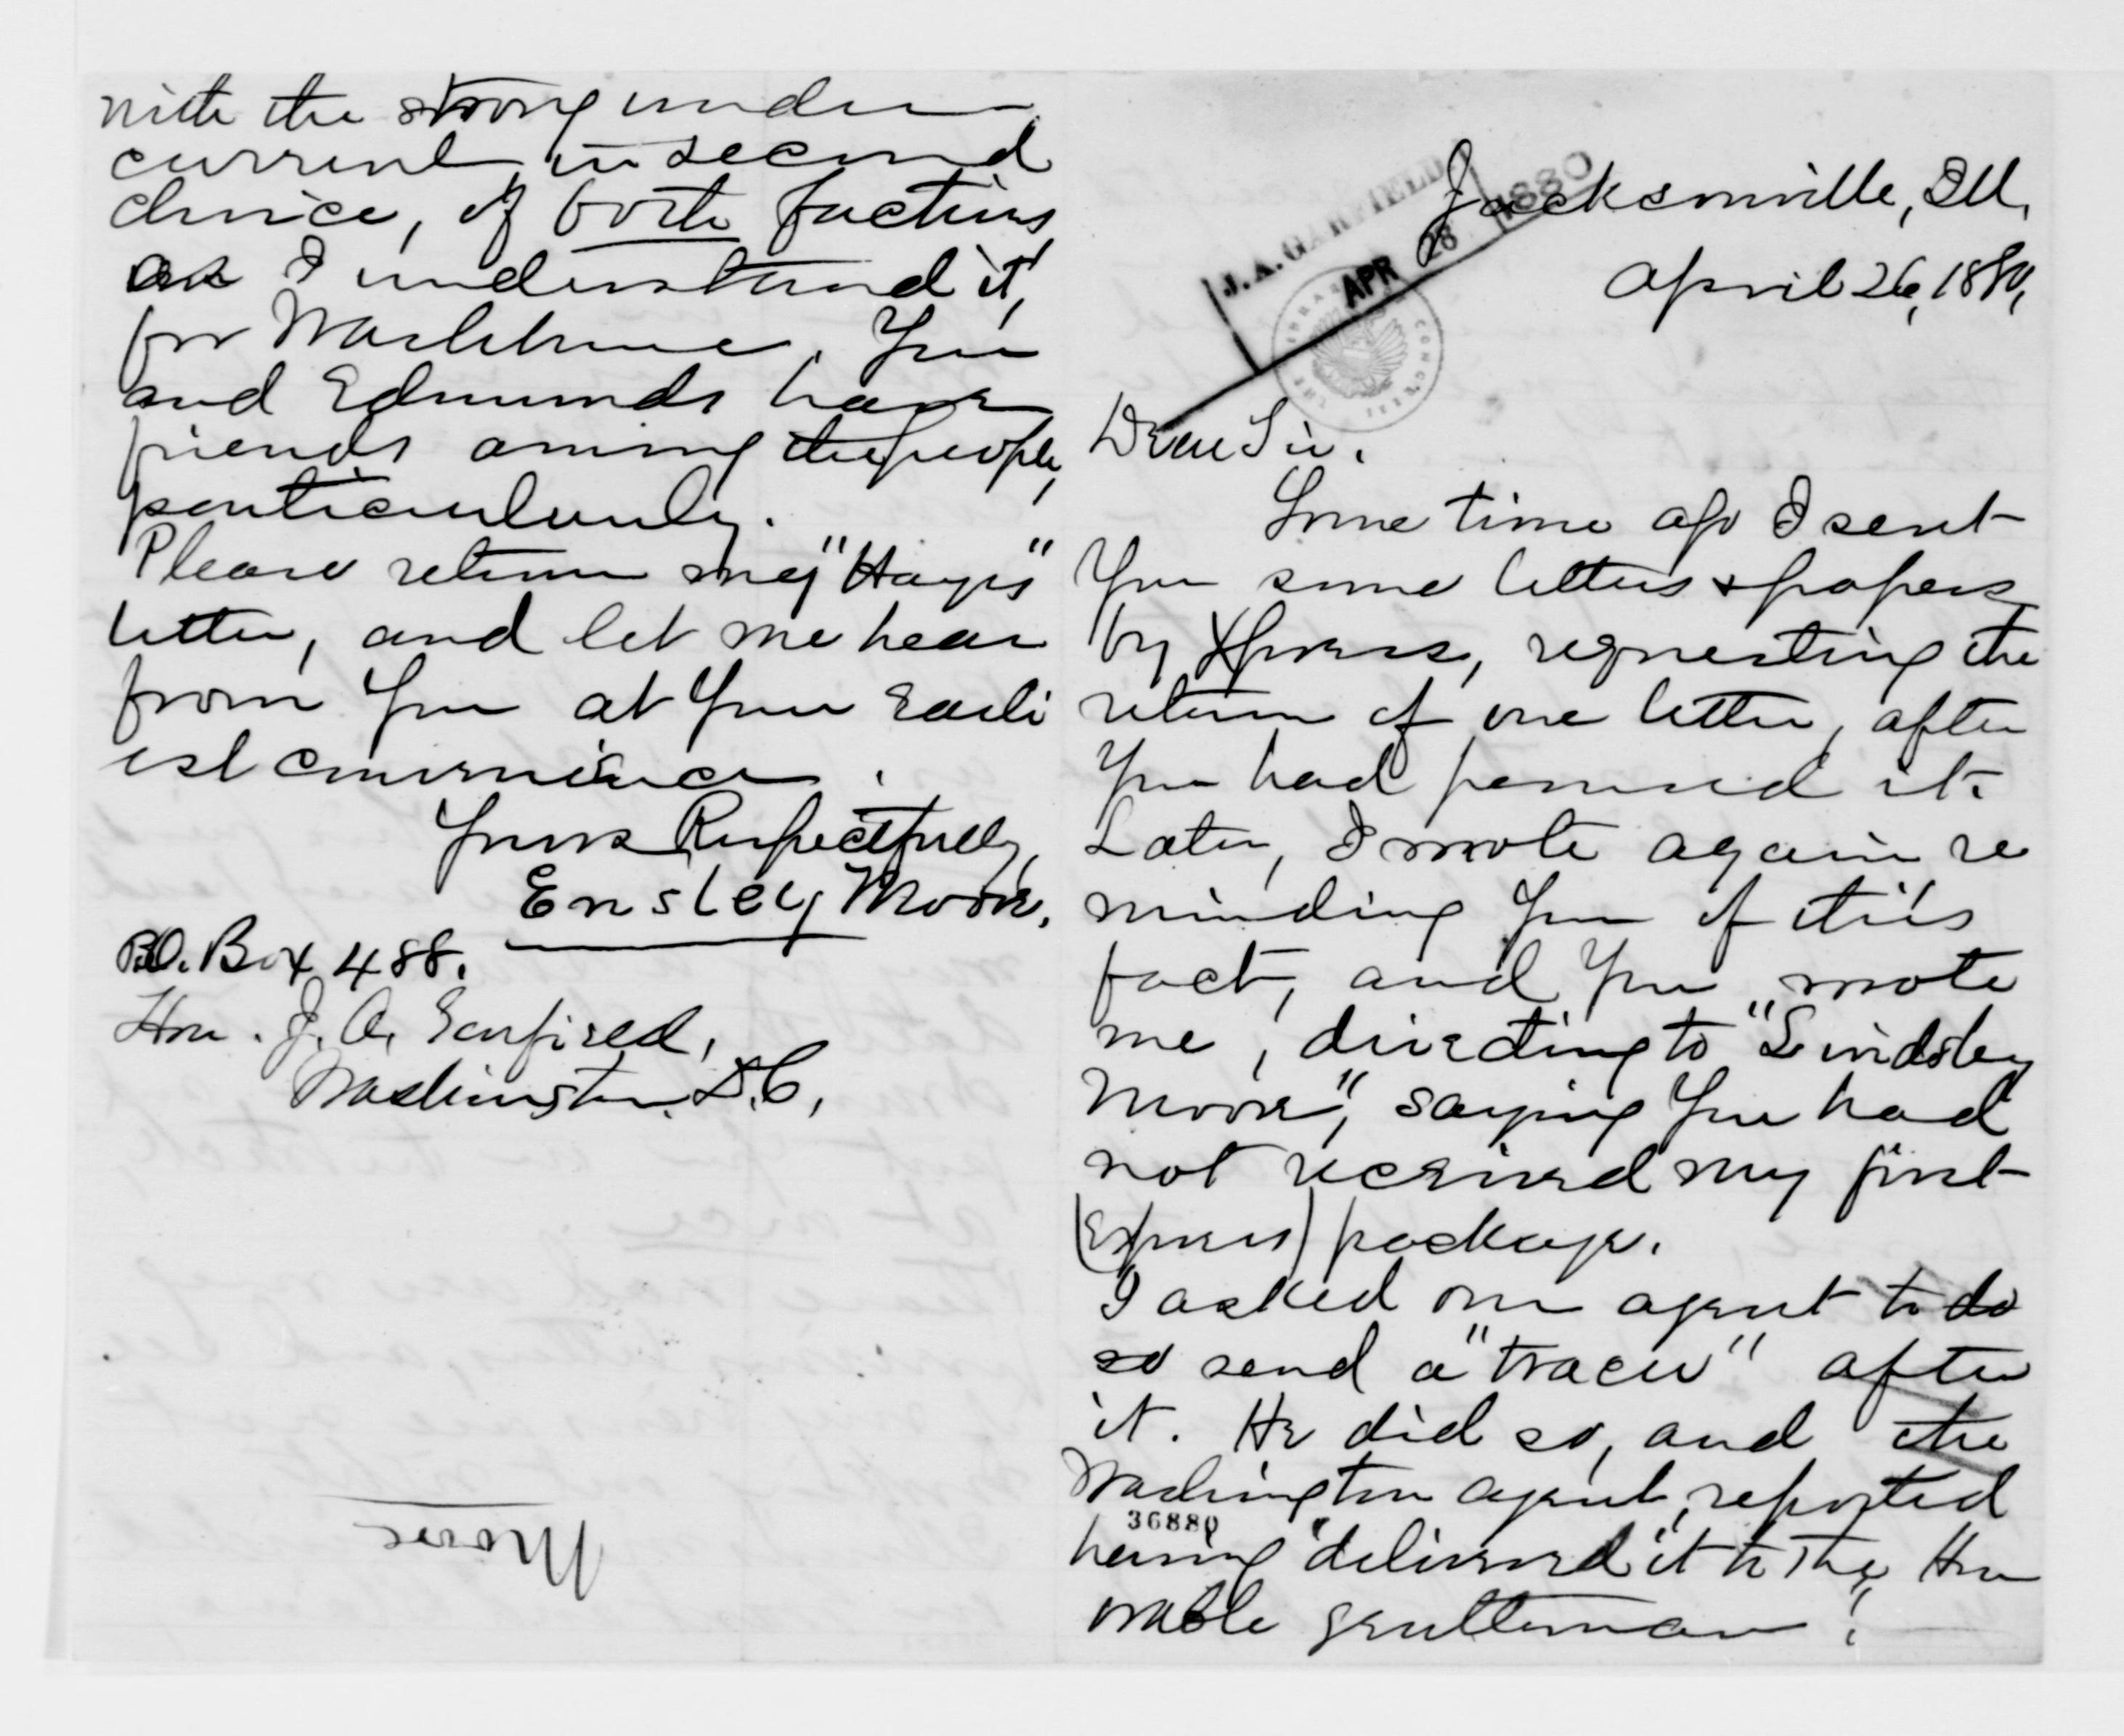 Jacksonville, Ill.
April 26, 1880,
J. A. GARFIELD
APR 28 1880
Dear Sir.
Some time ago I sent
You some letters & papers
by Xpress, requesting the
return of one letter, after
You had perused it.
Later, I wrote again re
minding You of this
fact, and You wrote
me, directing to "Lindsley
Moore", saying You had
not received my first
(Express) package.
I asked our agent to do
so send a "tracer" after
it. He did so, and the
Washington agent, reported
36880
having "delivered it to the Hon
orable gentleman!
with the strong under
current, in second
choice, of both factions
as I understand it,
for Washburne. You
and Edmunds have
friends among the people,
particularly.
Please return my "Hayes"
letter, and let me hear
from You at Your Earli
est convenience.
Yours Respectfully,
Ensley Moore.
P.O. Box 488.
Hon. J. A. Garfield,
Washington, D.C,
Moore